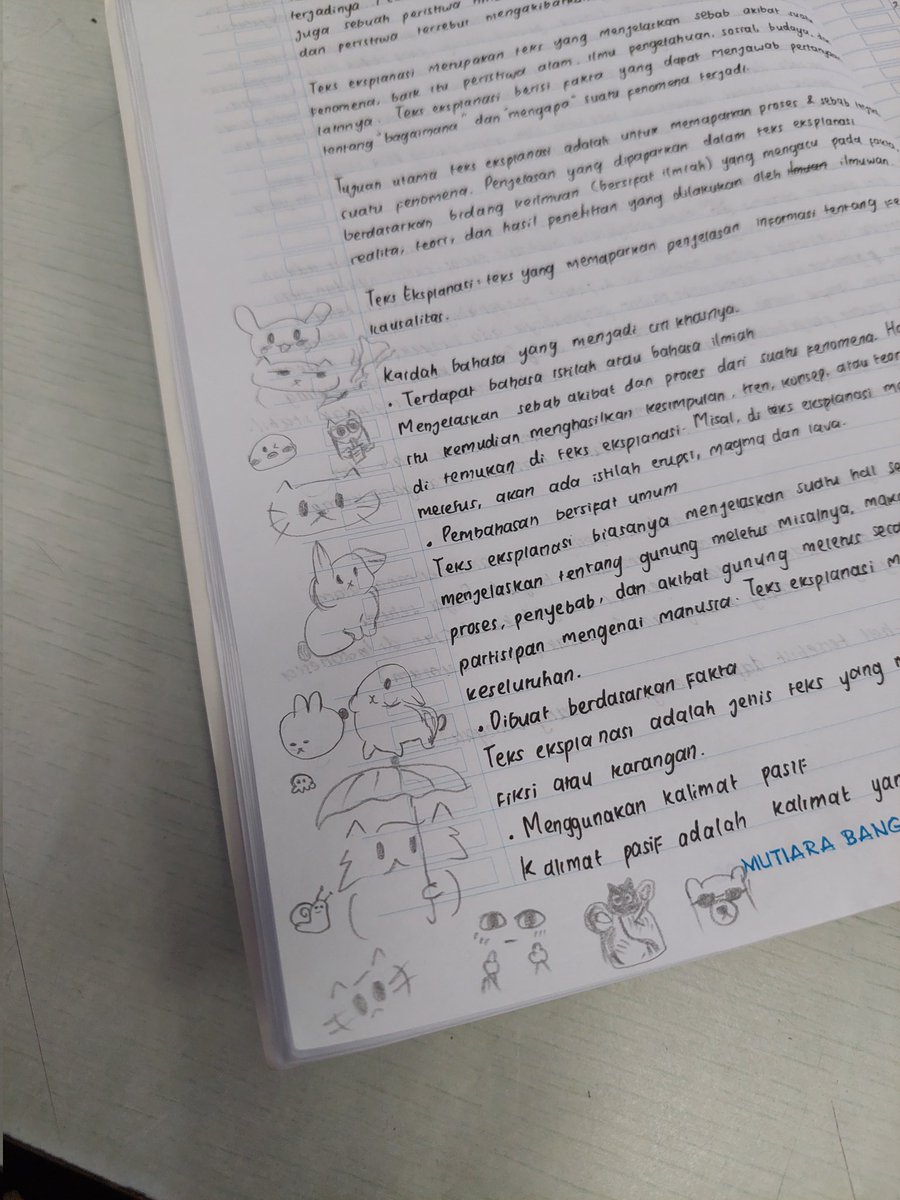 terjadinya
juga sebuah peristiwa
dan peristiwa tersebut mengakibatkan
Teks eksplanasi merupakan teks yang menjelaskan sebab akibat suatu
fenomena, baik itu peristiwa alam, ilmu pengetahuan, sosial, budaya, dan
lainnya. Teks eksplanasi berisi fakta yang dapat menjawab pertanyaan
tentang "bagaimana" dan "mengapa" suatu fenomena terjadi.
Tujuan utama teks eksplanasi adalah untuk memaparkan proses & sebab
suatu fenomena. Penjelasan yang dipaparkan dalam teks eksplanasi
berdasarkan bidang keilmuan (bersifat ilmiah) yang mengacu pada
realita, teori, dan hasil penelitian yang dilakukan oleh ilmuwan.
Teks Eksplanasi: teks yang memaparkan penjelasan informasi tentang
kausalitas.
Kaidah bahasa yang menjadi ciri khasnya.
• Terdapat bahasa istilah atau bahasa ilmiah
Menjelaskan sebab akibat dan proses dari suatu fenomena.
itu kemudian menghasilkan kesimpulan, tren, konsep, atau
di temukan di teks eksplanasi. Misal, di teks eksplanasi
meletus, akan ada istilah erupsi, magma dan lava.
• Pembahasan bersifat umum
Teks eksplanasi biasanya menjelaskan suatu hal
menjelaskan tentang gunung meletus misalnya,
proses, penyebab, dan akibat gunung meletus
partisipan mengenai manusia. Teks eksplanasi
keseluruhan.
• Dibuat berdasarkan fakta
Teks eksplanasi adalah jenis teks yang
fiksi atau karangan.
• Menggunakan kalimat pasif
Kalimat pasif adalah kalimat
MUTIARA BANG